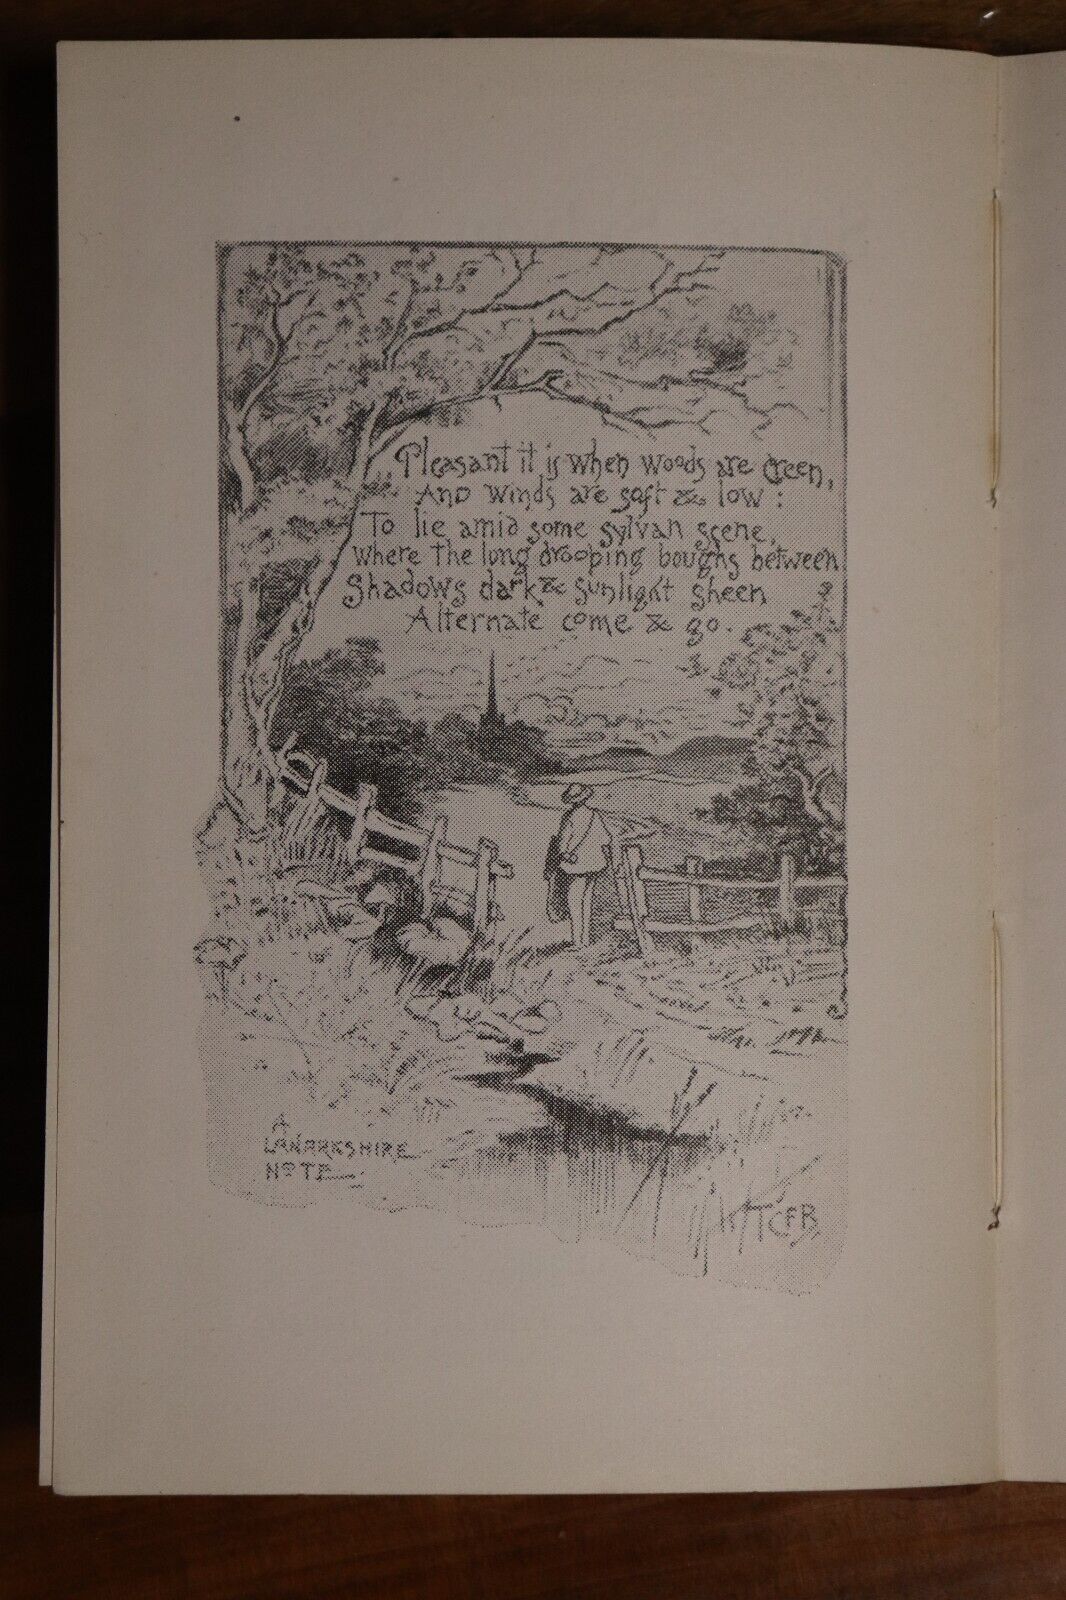 Pleasant it is when woods are Green,
And winds are soft & low:
To lie amid some sylvan scene,
Where the long drooping boughs between
Shadows dark & sunlight sheen
Alternate come & go.
A
LANARKSHIRE
NOTE
TCFB